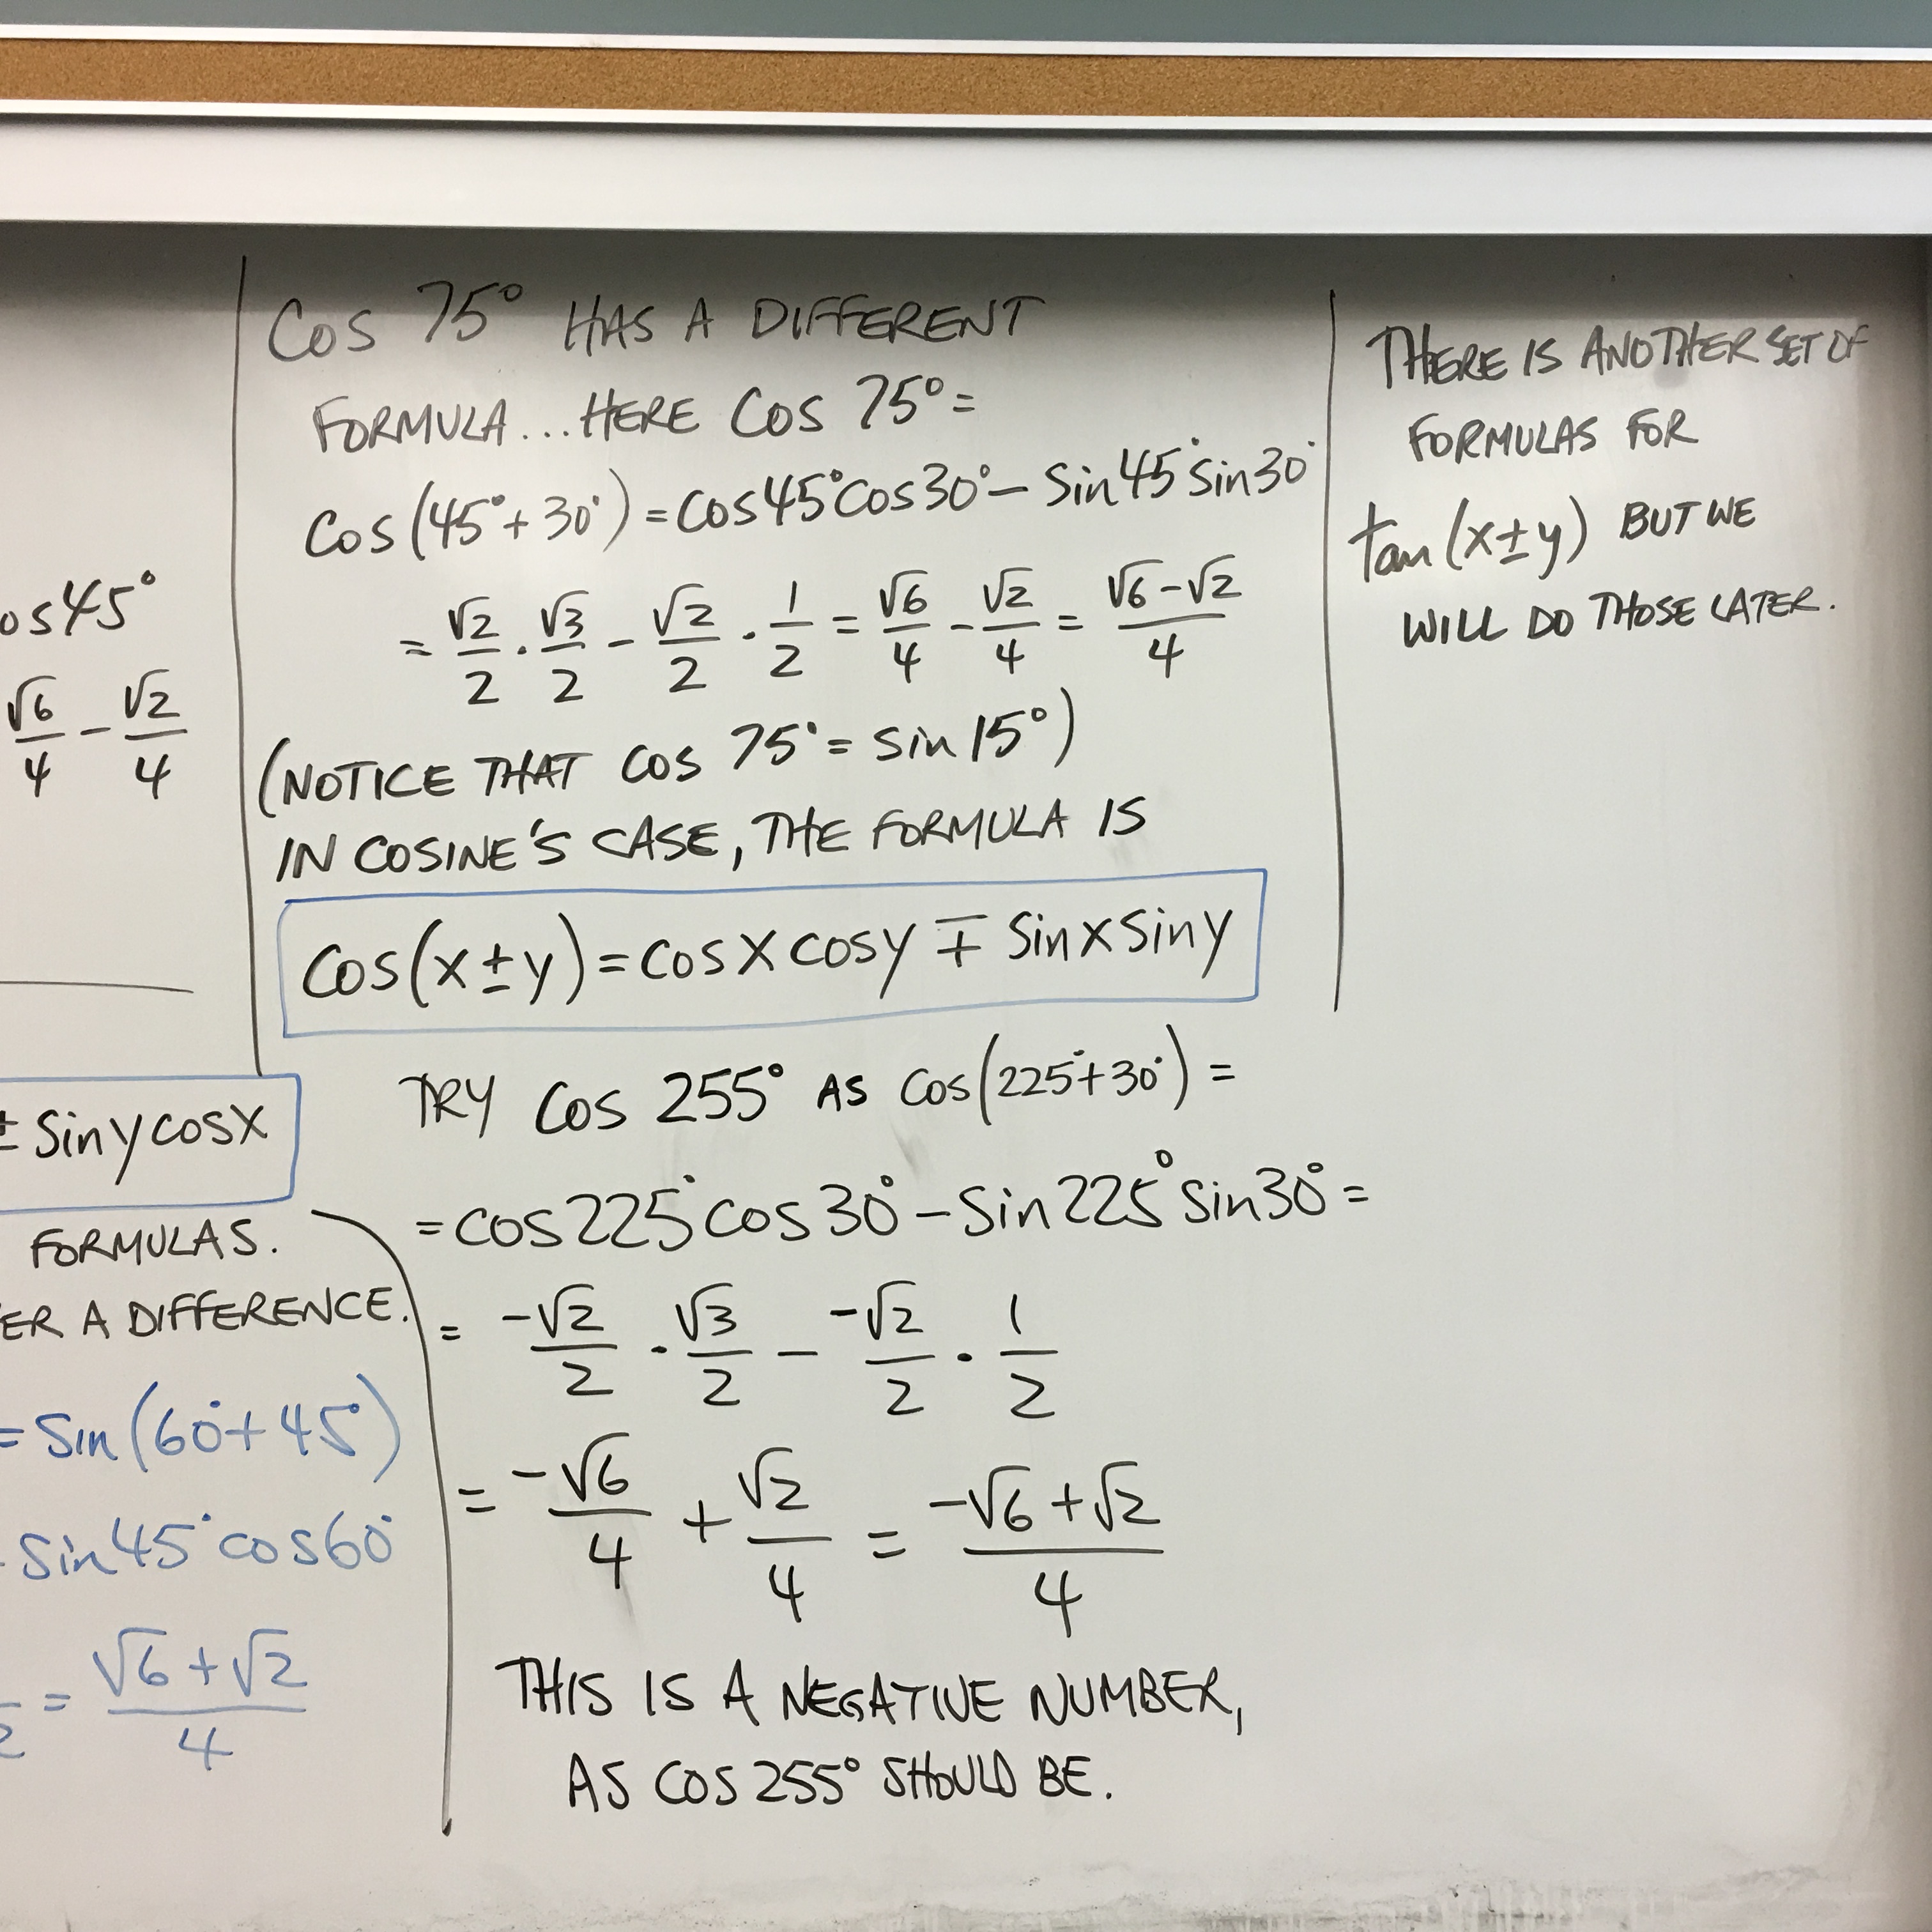 os45°
√6/4 - √2/4
± sin y cos x
FORMULAS.
ER A DIFFERENCE.
= sin(60°+45°)
sin45°cos60°
= (√6+√2)/4
COS 75° HAS A DIFFERENT
FORMULA...HERE COS 75°=
cos(45°+30°)=cos45°cos30°-sin45°sin30°
= √2/2 · √3/2 - √2/2 · 1/2 = √6/4 - √2/4 = (√6-√2)/4
(NOTICE THAT COS 75°= sin 15°)
IN COSINE'S CASE, THE FORMULA IS
cos(x±y)=cosx cosy ∓ sinx siny
TRY COS 255° AS cos(225°+30°) =
=cos225°cos30°-sin225°sin30°=
= -√2/2 · √3/2 - -√2/2 · 1/2
= -√6/4 + √2/4 = (-√6+√2)/4
THIS IS A NEGATIVE NUMBER,
AS COS 255° SHOULD BE.
THERE IS ANOTHER SET OF
FORMULAS FOR
tan(x±y) BUT WE
WILL DO THOSE LATER.